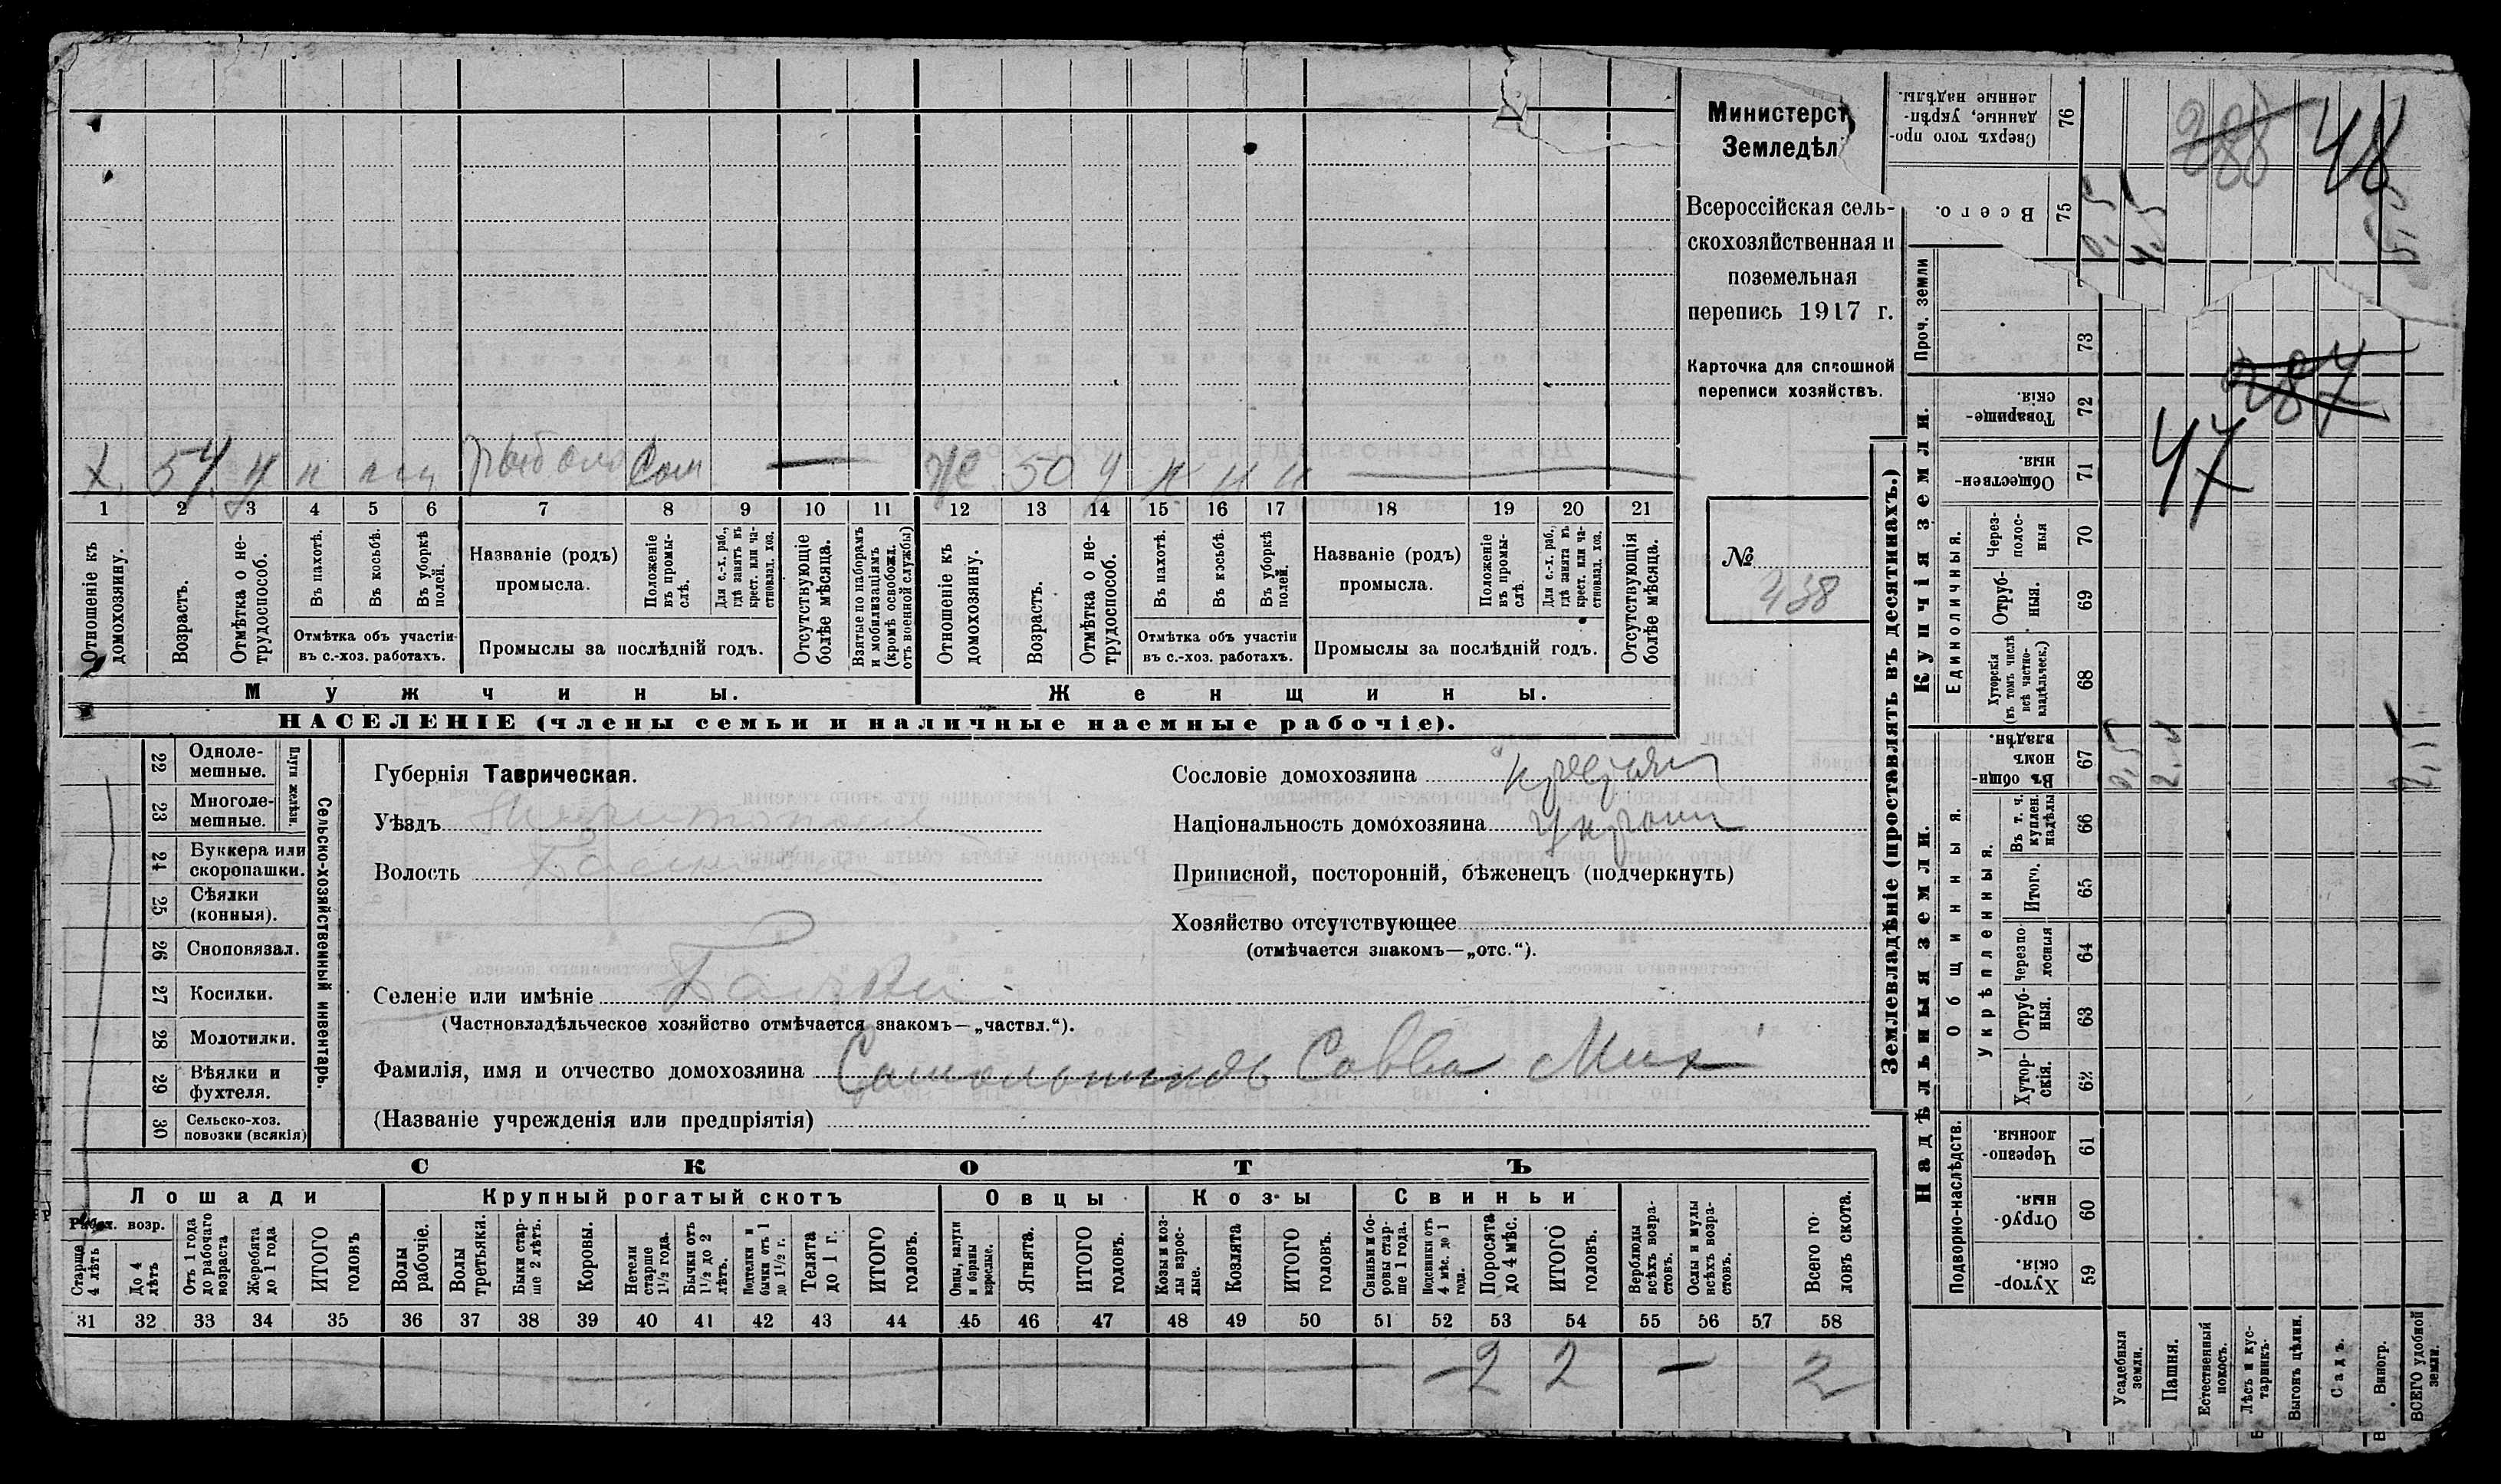 Министерст
Земледѣл
Всероссійская сель-
скохозяйственная и
поземельная
перепись 1917 г.
Карточка для сплошной
переписи хозяйствъ.
№
438
Х. 54 н п
50
1 2 3 4 5 6 7 8 9 10 11 12 13 14 15 16 17 18 19 20 21
Отношеніе къ домохозяину.
Возрастъ.
Отмѣтка о не-трудоспособ.
Въ пахотѣ.
Въ косьбѣ.
Въ уборкѣ полей.
Отмѣтка объ участіи
въ с.-хоз. работахъ.
Названіе (родъ)
промысла.
Положеніе въ промы-слѣ.
Для с.-х. раб., гдѣ занятъ въ крест. или ча-стновлад. хоз.
Промыслы за послѣдній годъ.
Отсутствующіе болѣе мѣсяца.
Взятые по наборамъ и мобилизаціямъ (кромѣ освобожд. отъ военной службы)
Отношеніе къ домохозяину.
Возрастъ.
Отмѣтка о не-трудоспособ.
Въ пахотѣ.
Въ косьбѣ.
Въ уборкѣ полей.
Отмѣтка объ участіи
въ с.-хоз. работахъ.
Названіе (родъ)
промысла.
Положеніе въ промы-слѣ.
Для с.-х. раб., гдѣ занята въ крест. или ча-стновлад. хоз.
Промыслы за послѣдній годъ.
Отсутствующія болѣе мѣсяца.
Мужчины.
Женщины.
НАСЕЛЕНІЕ (члены семьи и наличные наемные рабочіе).
22 Одноле-мешные.
23 Многоле-мешные.
Плуги желѣзн.
24 Буккера или скоропашки.
25 Сѣялки (конныя).
26 Сноповязал.
27 Косилки.
28 Молотилки.
29 Вѣялки и фухтеля.
30 Сельско-хоз. повозки (всякія)
Сельско-хозяйственный инвентарь.
Губернія Таврическая.
Уѣздъ
Волость
Селеніе или имѣніе Балки
(Частновладѣльческое хозяйство отмѣчается знакомъ—„частвл.“).
Фамилія, имя и отчество домохозяина Савва Мих
(Названіе учрежденія или предпріятія)
Сословіе домохозяина
Національность домохозяина
Приписной, посторонній, бѣженецъ (подчеркнуть)
Хозяйство отсутствующее
(отмѣчается знакомъ—„отс.“).
СКОТЪ
Лошади
Крупный рогатый скотъ
Овцы
Козы
Свиньи
Рабоч. возр.
Старше 4 лѣтъ
До 4 лѣтъ
Отъ 1 года до рабочаго возраста
Жеребята до 1 года
ИТОГО головъ
Волы рабочіе.
Волы третьяки.
Быки стар-ше 2 лѣтъ.
Коровы.
Нетели старше 1½ года.
Бычки отъ 1½ до 2 лѣтъ.
Подтелки и бычки отъ 1 до 1½ г.
Телята до 1 г.
ИТОГО головъ.
Овцы, валухи и бараны взрослые.
Ягнята.
ИТОГО головъ.
Козы и коз-лы взрос-лые.
Козлята
ИТОГО головъ.
Свиньи и бо-ровы стар-ше 1 года.
Подсвинки отъ 4 мѣс. до 1 года.
Поросята до 4 мѣс.
ИТОГО головъ.
Верблюды всѣхъ возра-стовъ.
Ослы и мулы всѣхъ возра-стовъ.
Всего го-ловъ скота.
31 32 33 34 35 36 37 38 39 40 41 42 43 44 45 46 47 48 49 50 51 52 53 54 55 56 57 58
2 2 2
Землевладѣніе (проставлять въ десятинахъ.)
Сверхъ того про-данные, укрѣп-ленные надѣлы. 76
288 48
Всего. 75
Проч. земли
73
287
47
Купчія земли.
Товарище-скія. 72
Обществен-ныя. 71
Единоличныя.
Через-полос-ныя 70
Отруб-ныя. 69
Хуторскія (въ томъ числѣ всѣ частно-владѣльческ.) 68
Надѣльныя земли.
Общинныя.
Въ общин-номъ владѣн. 67
Укрѣпленныя.
Въ т. ч. куплен. надѣлы 66
Итого. 65
Черезпо-лосныя 64
Отруб-ныя. 63
Хутор-скія. 62
Подворно-наслѣдств.
Черезпо-лосныя. 61
Отруб-ныя. 60
Хутор-скія. 59
Усадебныя земли.
Пашня.
Естественный покосъ.
Лѣсъ и кус-тарникъ.
Выгонъ цѣлин.
Садъ.
Виногр.
ВСЕГО удобной земли.